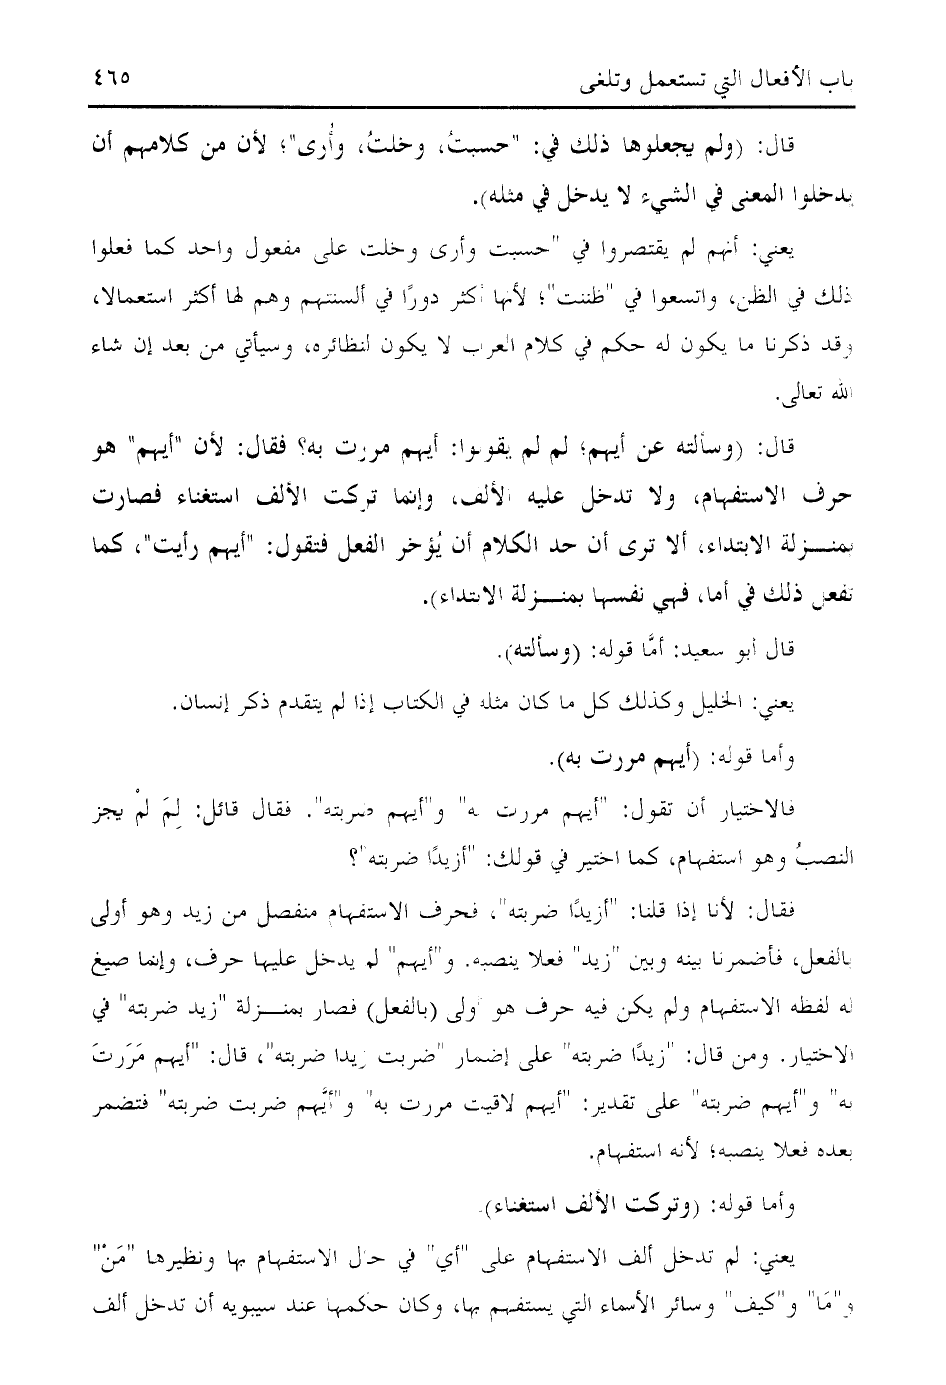 باب الأفعال التي تستعمل وتلغى ٤٦٥
قال: (ولم يجعلوها ذلك في: "حسبتُ، وخلتُ، وأُرى"؛ لأن من كلامهم أن
يدخلوا المعنى في الشيء لا يدخل في مثله).
يعني: أنهم لم يقتصروا في "حسبت وأرى وخلت على مفعول واحد كما فعلوا
ذلك في الظن، واتسعوا في "ظننت"؛ لأنها أكثر دورًا في ألسنتهم وهم لها أكثر استعمالا،
وقد ذكرنا ما يكون له حكم في كلام العرب لا يكون لنظائره، وسيأتي من بعد إن شاء
الله تعالى.
قال: (وسألته عن أيهم؛ لم لم يقولوا: أيهم مررت به؟ فقال: لأن "أيهم" هو
حرف الاستفهام، ولا تدخل عليه الألف، وإنما تركت الألف استغناء فصارت
بمنــزلة الابتداء، ألا ترى أن حد الكلام أن يُؤخر الفعل فتقول: "أيهم رأيت"، كما
تفعل ذلك في أما، فهي نفسها بمنــزلة الابتداء).
قال أبو سعيد: أمَّا قوله: (وسألته).
يعني: الخليل وكذلك كل ما كان مثله في الكتاب إذا لم يتقدم ذكر إنسان.
وأما قوله: (أيهم مررت به).
فالاختيار أن تقول: "أيهم مررت به" و"أيهم ضربته". فقال قائل: لِمَ لمْ يجز
النصبُ وهو استفهام، كما اختير في قولك: "أزيدًا ضربته"؟
فقال: لأنا إذا قلنا: "أزيدًا ضربته"، فحرف الاستفهام منفصل من زيد وهو أولى
بالفعل، فأضمرنا بينه وبين "زيد" فعلا ينصبه. و"أيهم" لم يدخل عليها حرف، وإنما صيغ
له لفظه الاستفهام ولم يكن فيه حرف هو أولى (بالفعل) فصار بمنــزلة "زيد ضربته" في
الاختيار. ومن قال: "زيدًا ضربته" على إضمار "ضربت زيدا ضربته"، قال: "أيهم مَرَرتَ
به" و"أيهم ضربته" على تقدير: "أيهم لاقيت مررت به" و"أيَّهم ضربت ضربته" فتضمر
بعده فعلا ينصبه؛ لأنه استفهام.
وأما قوله: (وتركت الألف استغناء).
يعني: لم تدخل ألف الاستفهام على "أي" في حال الاستفهام بها ونظيرها "مَنْ"
و"مَا" و"كيف" وسائر الأسماء التي يستفهم بها، وكان حكمها عند سيبويه أن تدخل ألف